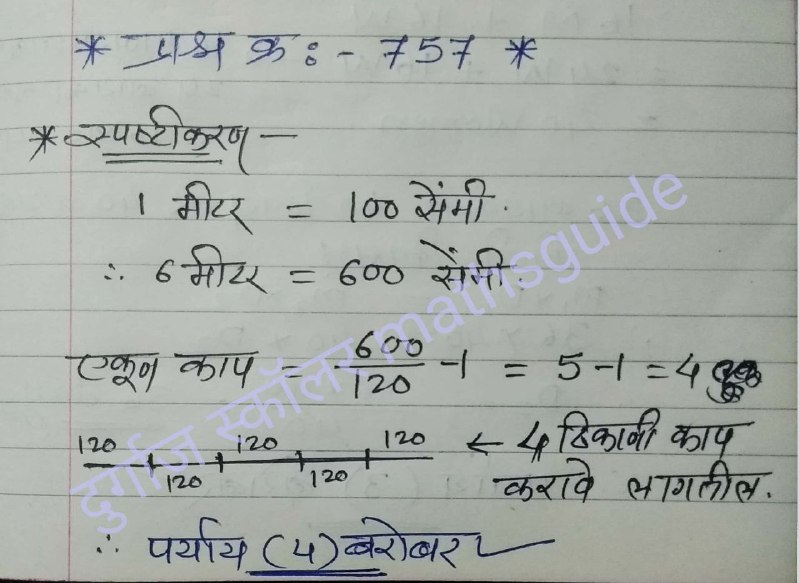 * प्रश्न क्र:- 757 *
* स्पष्टीकरण —
1 मीटर = 100 सेंमी.
∴ 6 मीटर = 600 सेंमी.
एकूण काप = 600/120 - 1 = 5 - 1 = 4
120 120 120 120 120 ← 4 ठिकाणी काप
करावे लागतील.
∴ पर्याय (4) बरोबर ✓
दुर्गाज स्कॉलर mathsguide